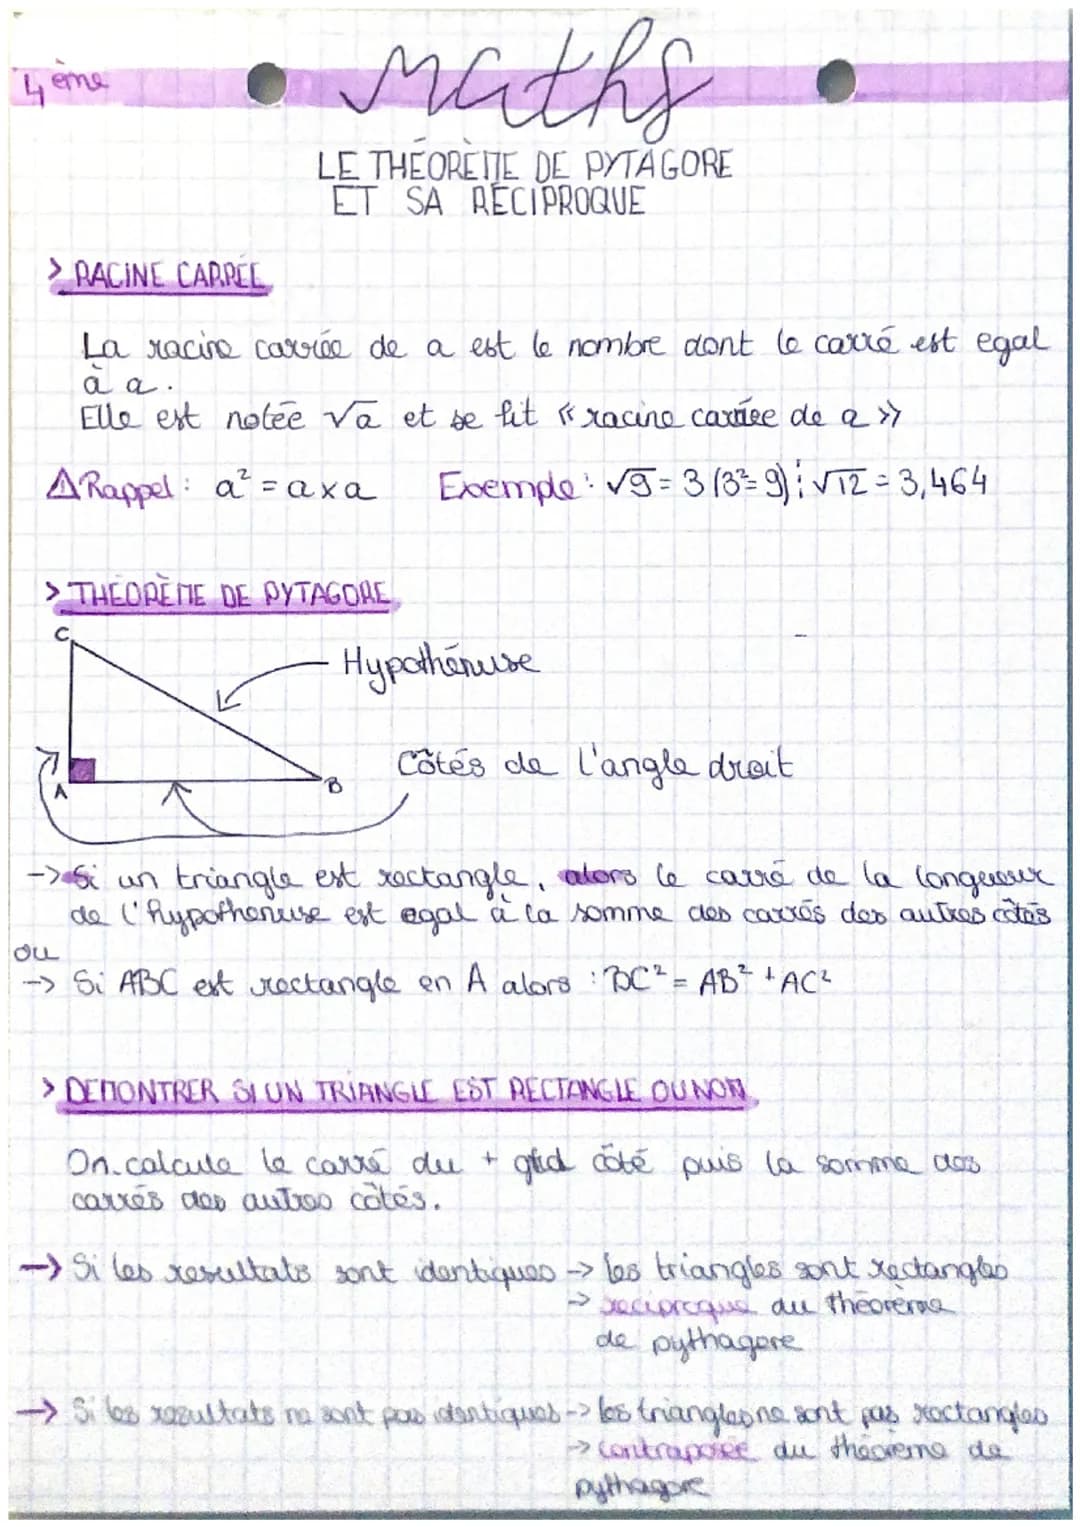 4ème
maths
LE THÉORÈME DE PYTAGORE
ET SA RÉCIPROQUE
> RACINE CARRÉE
La racine carrée de a est le nombre dont le carré est egal
à a.
Elle est notée √a et se lit « racine carrée de a »
⚠ Rappel : a² = a x a Exemple : √9 = 3 (3²= 9) ; √12 = 3,464
> THÉORÈME DE PYTAGORE
C
Hypothénuse
Côtés de l'angle droit
A B
-> Si un triangle est rectangle, alors le carré de la longueur
de l'hypothenuse est egal à la somme des carrés des autres côtés
ou
-> Si ABC est rectangle en A alors : BC² = AB² + AC²
> DEMONTRER SI UN TRIANGLE EST RECTANGLE OU NON
On calcule le carré du + grd côté puis la somme des
carrés des autres côtés.
-> Si les resultats sont identiques -> les triangles sont rectangles
-> reciproque du théorème
de pythagore
-> Si les resultats ne sont pas identiques -> les triangles ne sont pas rectangles
-> contraposée du théorème de
pythagore